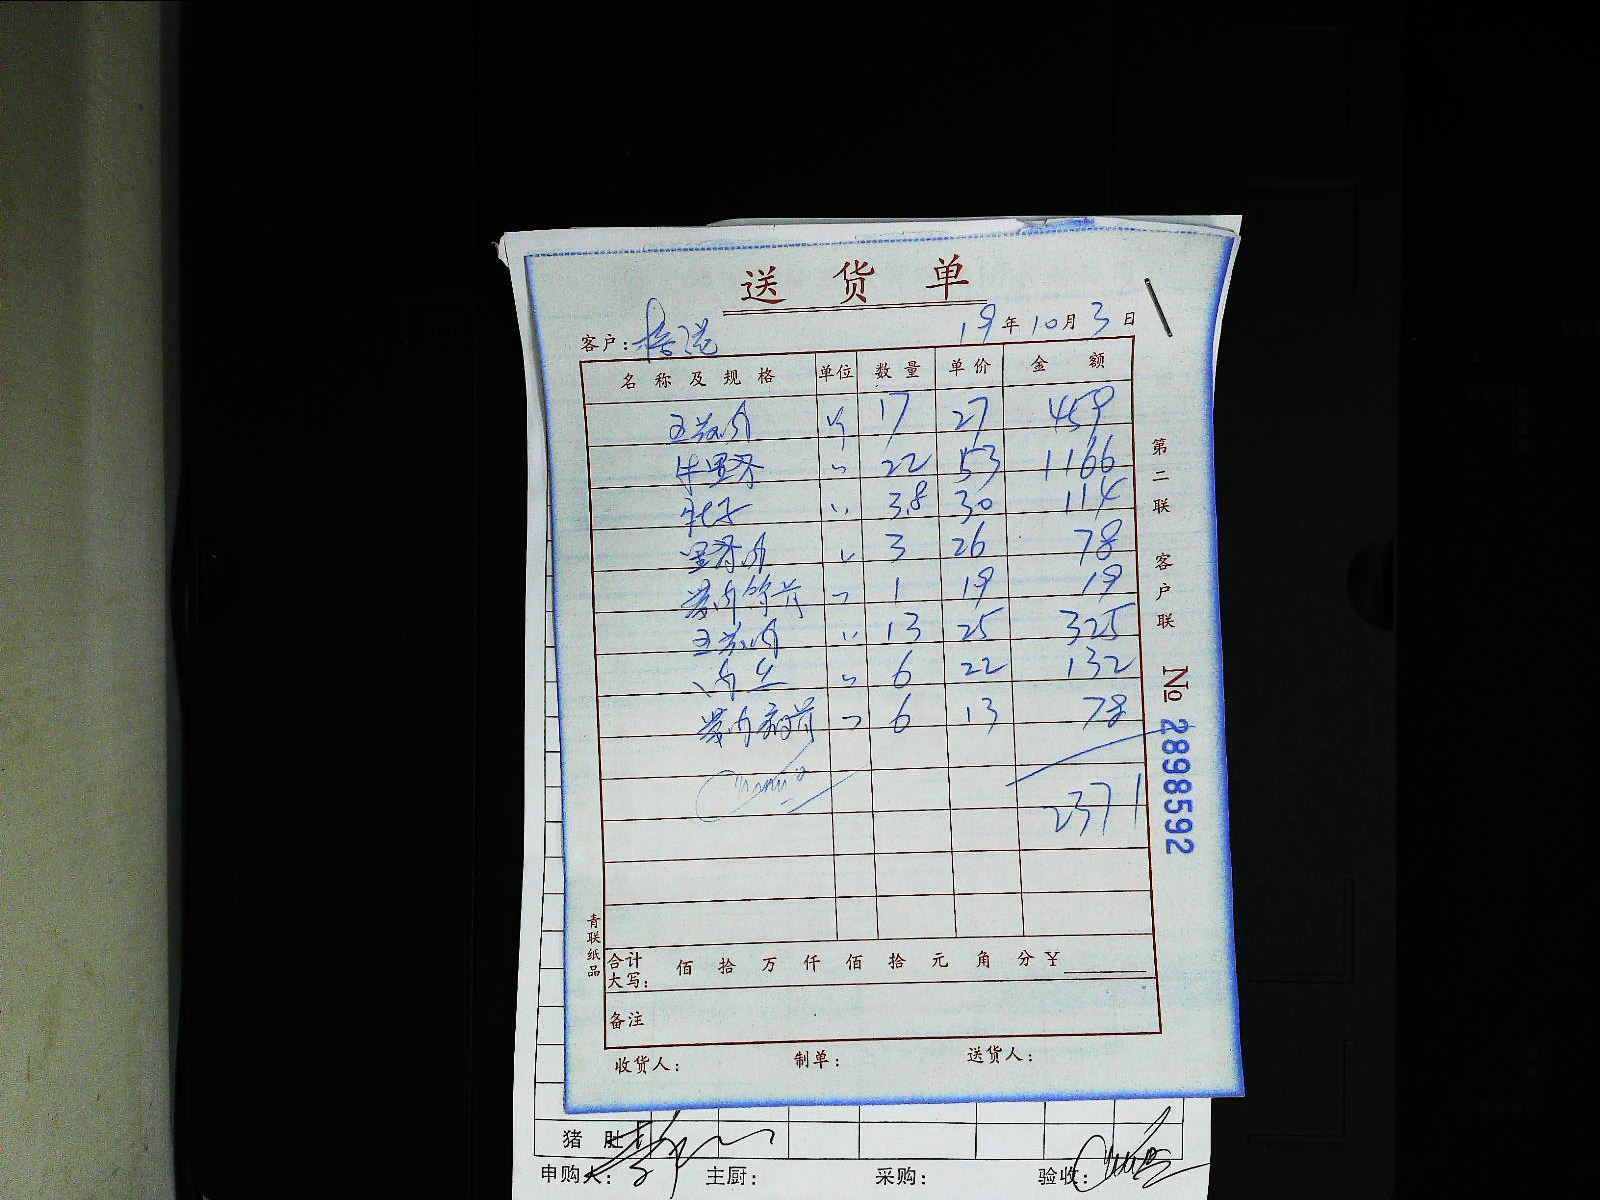 送货单
客户: 19年10月3日
名称及规格 单位 数量 单价 金额
五花肉 斤 17 27 459
牛里脊 〃 22 53 1166
〃 3.8 30 114
里脊肉 〃 3 26 78
〃 1 19 19
五花肉 〃 13 25 325
肉丝 〃 6 22 132
〃 6 13 78
2371
合计大写: 佰拾万仟佰拾元角分¥
备注
收货人: 制单: 送货人:
青联纸品
第二联 客户联 No 2898592
猪肚
申购人: 主厨: 采购: 验收: